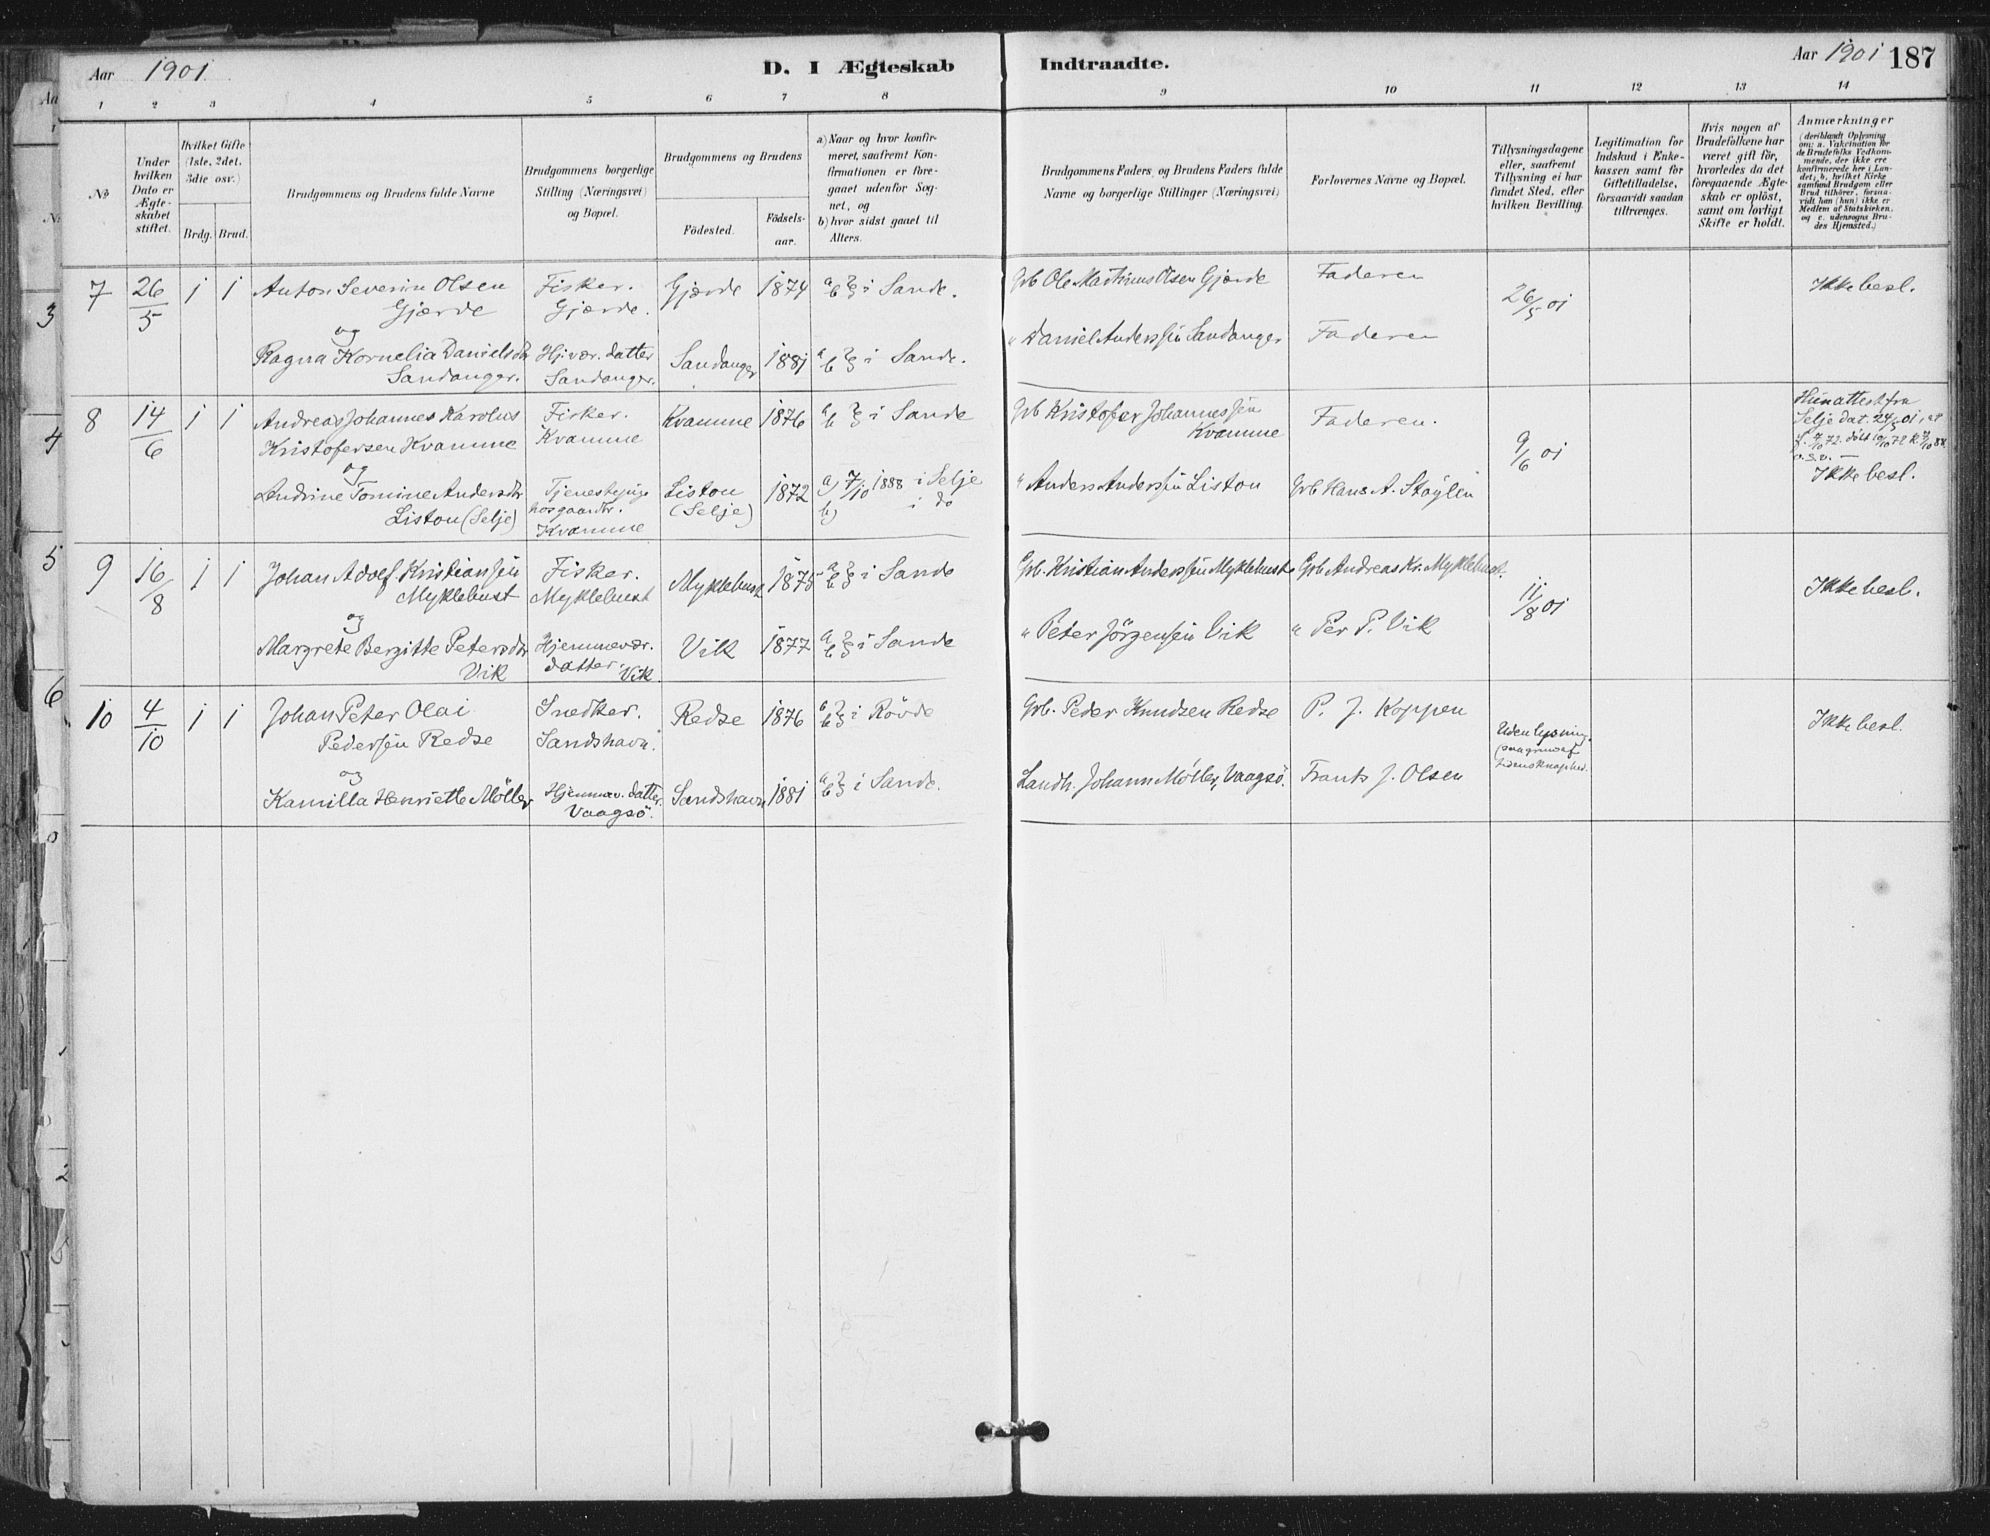 Aar 1901
D. I Ægteskab Indtraadte.
Aar 1901 187
1 2 3 4 5 6 7 8 9 10 11 12 13 14
No
Under hvilken Dato er Ægteskabet stiftet.
Hvilket Gifte (1ste, 2det, 3die osv.)
Brdg. Brud.
Brudgommens og Brudens fulde Navne
Brudgommens borgerlige Stilling (Næringsvei) og Bopæl.
Brudgommens og Brudens
Födested.
Födsels-aar.
a) Naar og hvor konfirmeret, saafremt Konfirmationen er foregaaet udenfor Sognet, og
b) hvor sidst gaaet til Alters.
Brudgommens Faders, og Brudens Faders fulde Navne og borgerlige Stillinger (Næringsvei)
Forlovernes Navne og Bopæl.
Tillysningsdagene eller, saafremt Tillysning ei har fundet Sted, efter hvilken Bevilling.
Legitimation for Indskud i Enkekassen samt for Giftetilladelse, forsaavidt saadan tiltrænges.
Hvis nogen af Brudefolkene har været gift för, hvorledes da det foregaaende Ægteskab er oplöst, samt om lovligt Skifte er holdt.
Anmærkninger (deriblandt Oplysning om: a. Vakcination for de Brudefolks Vedkommende, der ikke ere konfirmerede her i Landet, b. hvilket Kirkesamfund Brudgom eller Brud tilhörer, forsaavidt han (hun) ikke er Medlem af Statskirken, og c. udensogns Brudes Hjemsted.)
7 26/5 1 1 Anton Severin Olsen Gjærde
Fisker. Gjærde.
Gjærde 1874 a b i Sande.
Grb Ole Martinus Olsen Gjærde
Faderen
26/5 01
Ikke besl.
og
Ragna Kornelia Danielsdtr Sandanger.
Hjvær. datter Sandanger.
Sandanger 1881 a b i Sande.
" Daniel Anderssen Sandanger
Faderen
8 14/6 1 1 Andreas Johannes Karolus Kristofersen Kvamme
Fisker. Kvamme
Kvamme 1876 a b i Sande
Grb Kristofer Johannessen Kvamme
Faderen.
9/6 01
attest fra Selje dat. 24/5 01
Ikke besl.
og
Andrine Tomine Andersdtr Liston (Selje)
Tjenestepige hos gaardbr. Kvamme
Liston (Selje) 1872 a) 7/10 1888 i Selje
b) i do
" Anders Anderssen Liston
Grb Hans A. Støylen
9 16/8 1 1 Johan Adolf Kristianssen Myklebust
Fisker. Myklebust
Myklebust 1875 a b i Sande
Grb. Kristian Anderssen Myklebust
Grb Andreas Kr. Myklebust.
11/8 01
Ikke besl.
og
Margrete Bergitte Petersdtr Vik
Hjemmevær. datter. Vik
Vik 1877 a b i Sande
" Peter Jørgensen Vik
" Per P. Vik
10 4/10 1 1 Johan Peter Olai Pedersen Redse
Snedker. Sandshavn.
Redse 1876 a b i Rövde
Grb. Peder Knudsen Redse
P. J. Koppen
Uden lysning paa grund af tidens knaphed.
Ikke besl.
og
Kamilla Henriette Möller
Hjemmev. datter. Vaagsö.
Sandshavn 1881 a b i Sande.
Landh. Johann Møller, Vaagsö.
Frantz J. Olsen